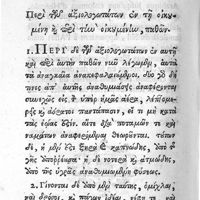 Περὶ τῶν ἀξιολογωτάτων ἐν τῇ οἰκου-
μένῃ ἢ περὶ τὴν οἰκουμένην, παθῶν.
1. ΠΕΡῚ δὲ τῶν ἀξιολογωτάτων ἐν αὐτῇ
καὶ περὶ αὐτὴν παθῶν νῦν λέγωμεν, αὐτὰ
τὰ ἀναγκαῖα ἀνακεφαλαιούμενοι. δύο γὰρ δή
τινες ἀπ' αὐτῆς ἀναθυμιάσεις ἀναφέρονται
συνεχῶς εἰς τὸν ὑπὲρ ἡμᾶς ἀέρα, λεπτομερ-
εῖς καὶ ἀόρατοι παντάπασιν, εἴ τι μὴ κατὰ
τὰς ἑῴας ἔστιν, αἵτε διὰ ποταμῶν τε καὶ
ναμάτων ἀναφερόμεναι θεωροῦνται. τούτων
δὲ, ἡ μέν ἐστι ξηρὰ καὶ καπνώδης, ἀπὸ τῆς
γῆς ἀπορρέουσα· ἡ δὲ νοτερὰ καὶ ἀτμώδης,
ἀπὸ τῆς ὑγρᾶς ἀναθυμιωμένη φύσεως.
2. Γίνονται δὲ ἀπὸ μὲν ταύτης, ὁμίχλαι,
καὶ δρόσοι, καὶ πάγων ἰδέαι, νέφη τε καὶ